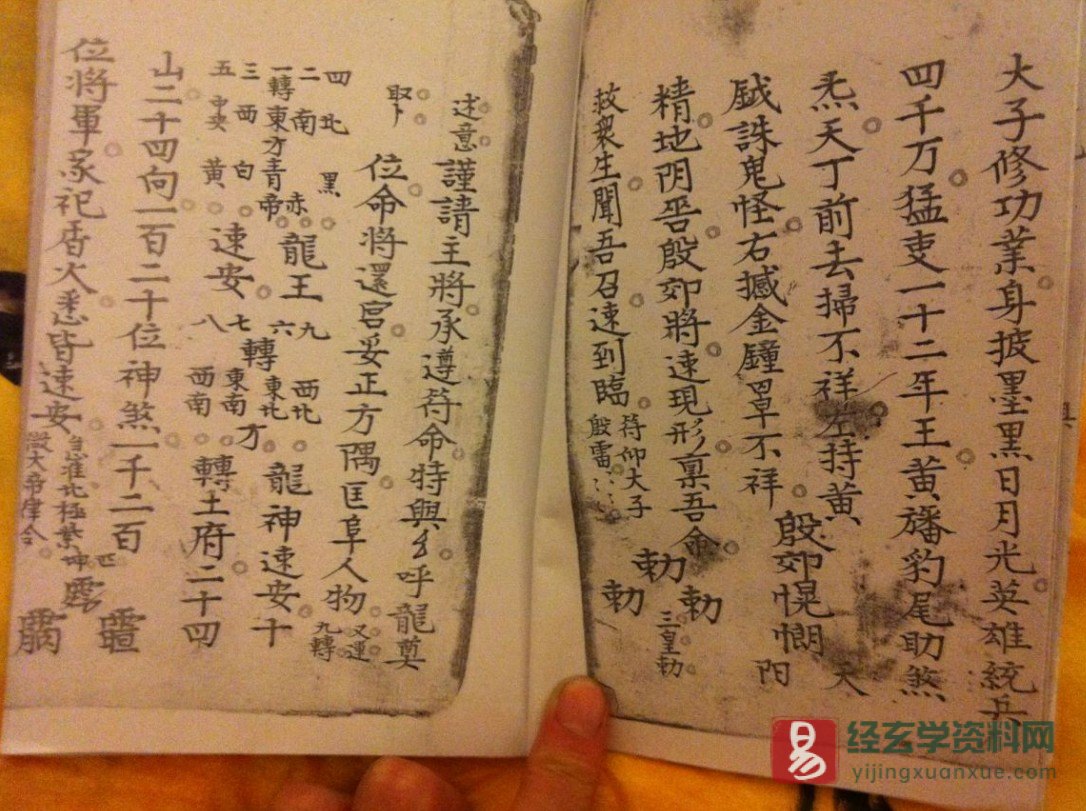 大子修功業身披墨黑日月光英雄統兵
四千万猛吏一十二年王黄旛豹尾助煞
炁天丁前去掃不祥左持黄
殷郊愰㦂
天
阳
鉞誅鬼怪右撼金鐘罩不祥
精地阴吿殷郊將速現形稟吾命
勅
勅
勅
三皇勅
救衆生聞吾召速到臨
符仰大子
殷雷
述意
謹請主將承遵符命特與厶呼龍奠
取卜
位命將還宮妥正方隅匡阜人物
又運
九轉
四北黑
二南赤
一轉東方青帝
三西白
五中央黄
龍王
速安
九西北
六東北
七東南
八西南
轉
方
龍神速安十
轉土府二十四
山二十四向一百二十位神煞一千二百
位將軍家祀香火悉皆速安
经玄学资料网
yijingxuanxue.com